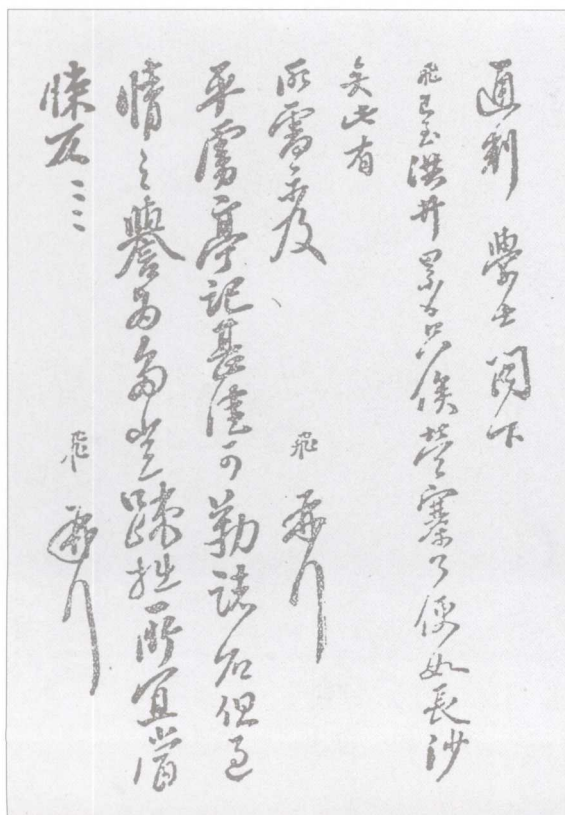 通判 學士 閣下
飛已至洪井累日只俟營寨了便如長沙
矣此有
所需示及 飛 再拜
平虜亭記甚佳可勒諸石但過
情之譽為多豈踈拙所宜當
悚仄〻〻 飛 再拜